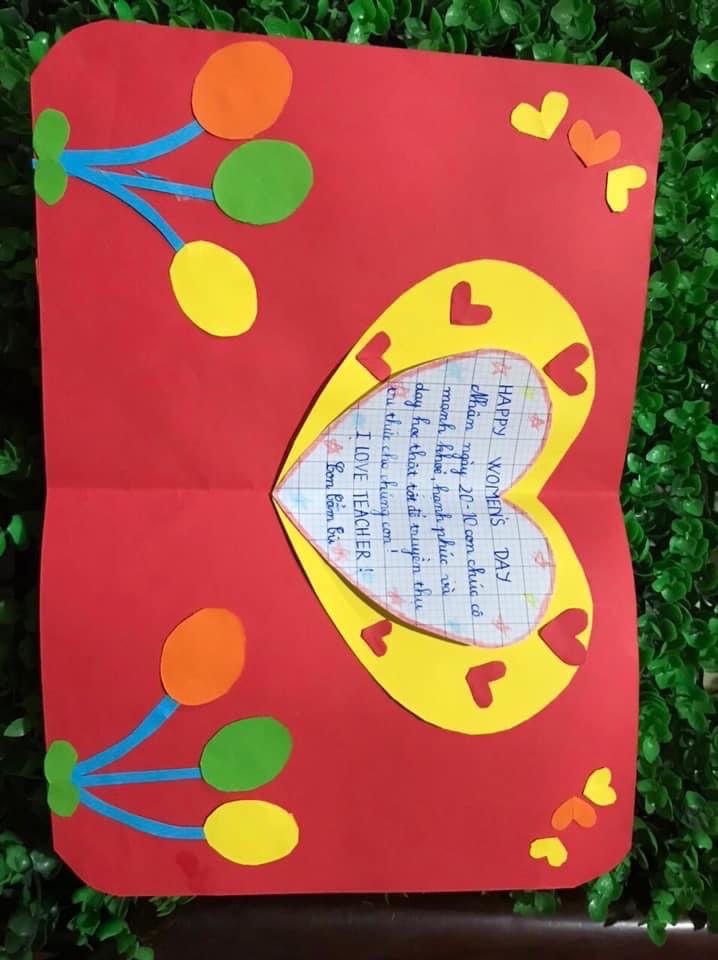 HAPPY WOMEN'S DAY
Nhân ngày 20-10 con chúc cô
mạnh khoẻ, hạnh phúc và
dạy học thật tốt để truyền thụ
tri thức cho chúng con!
I LOVE TEACHER!